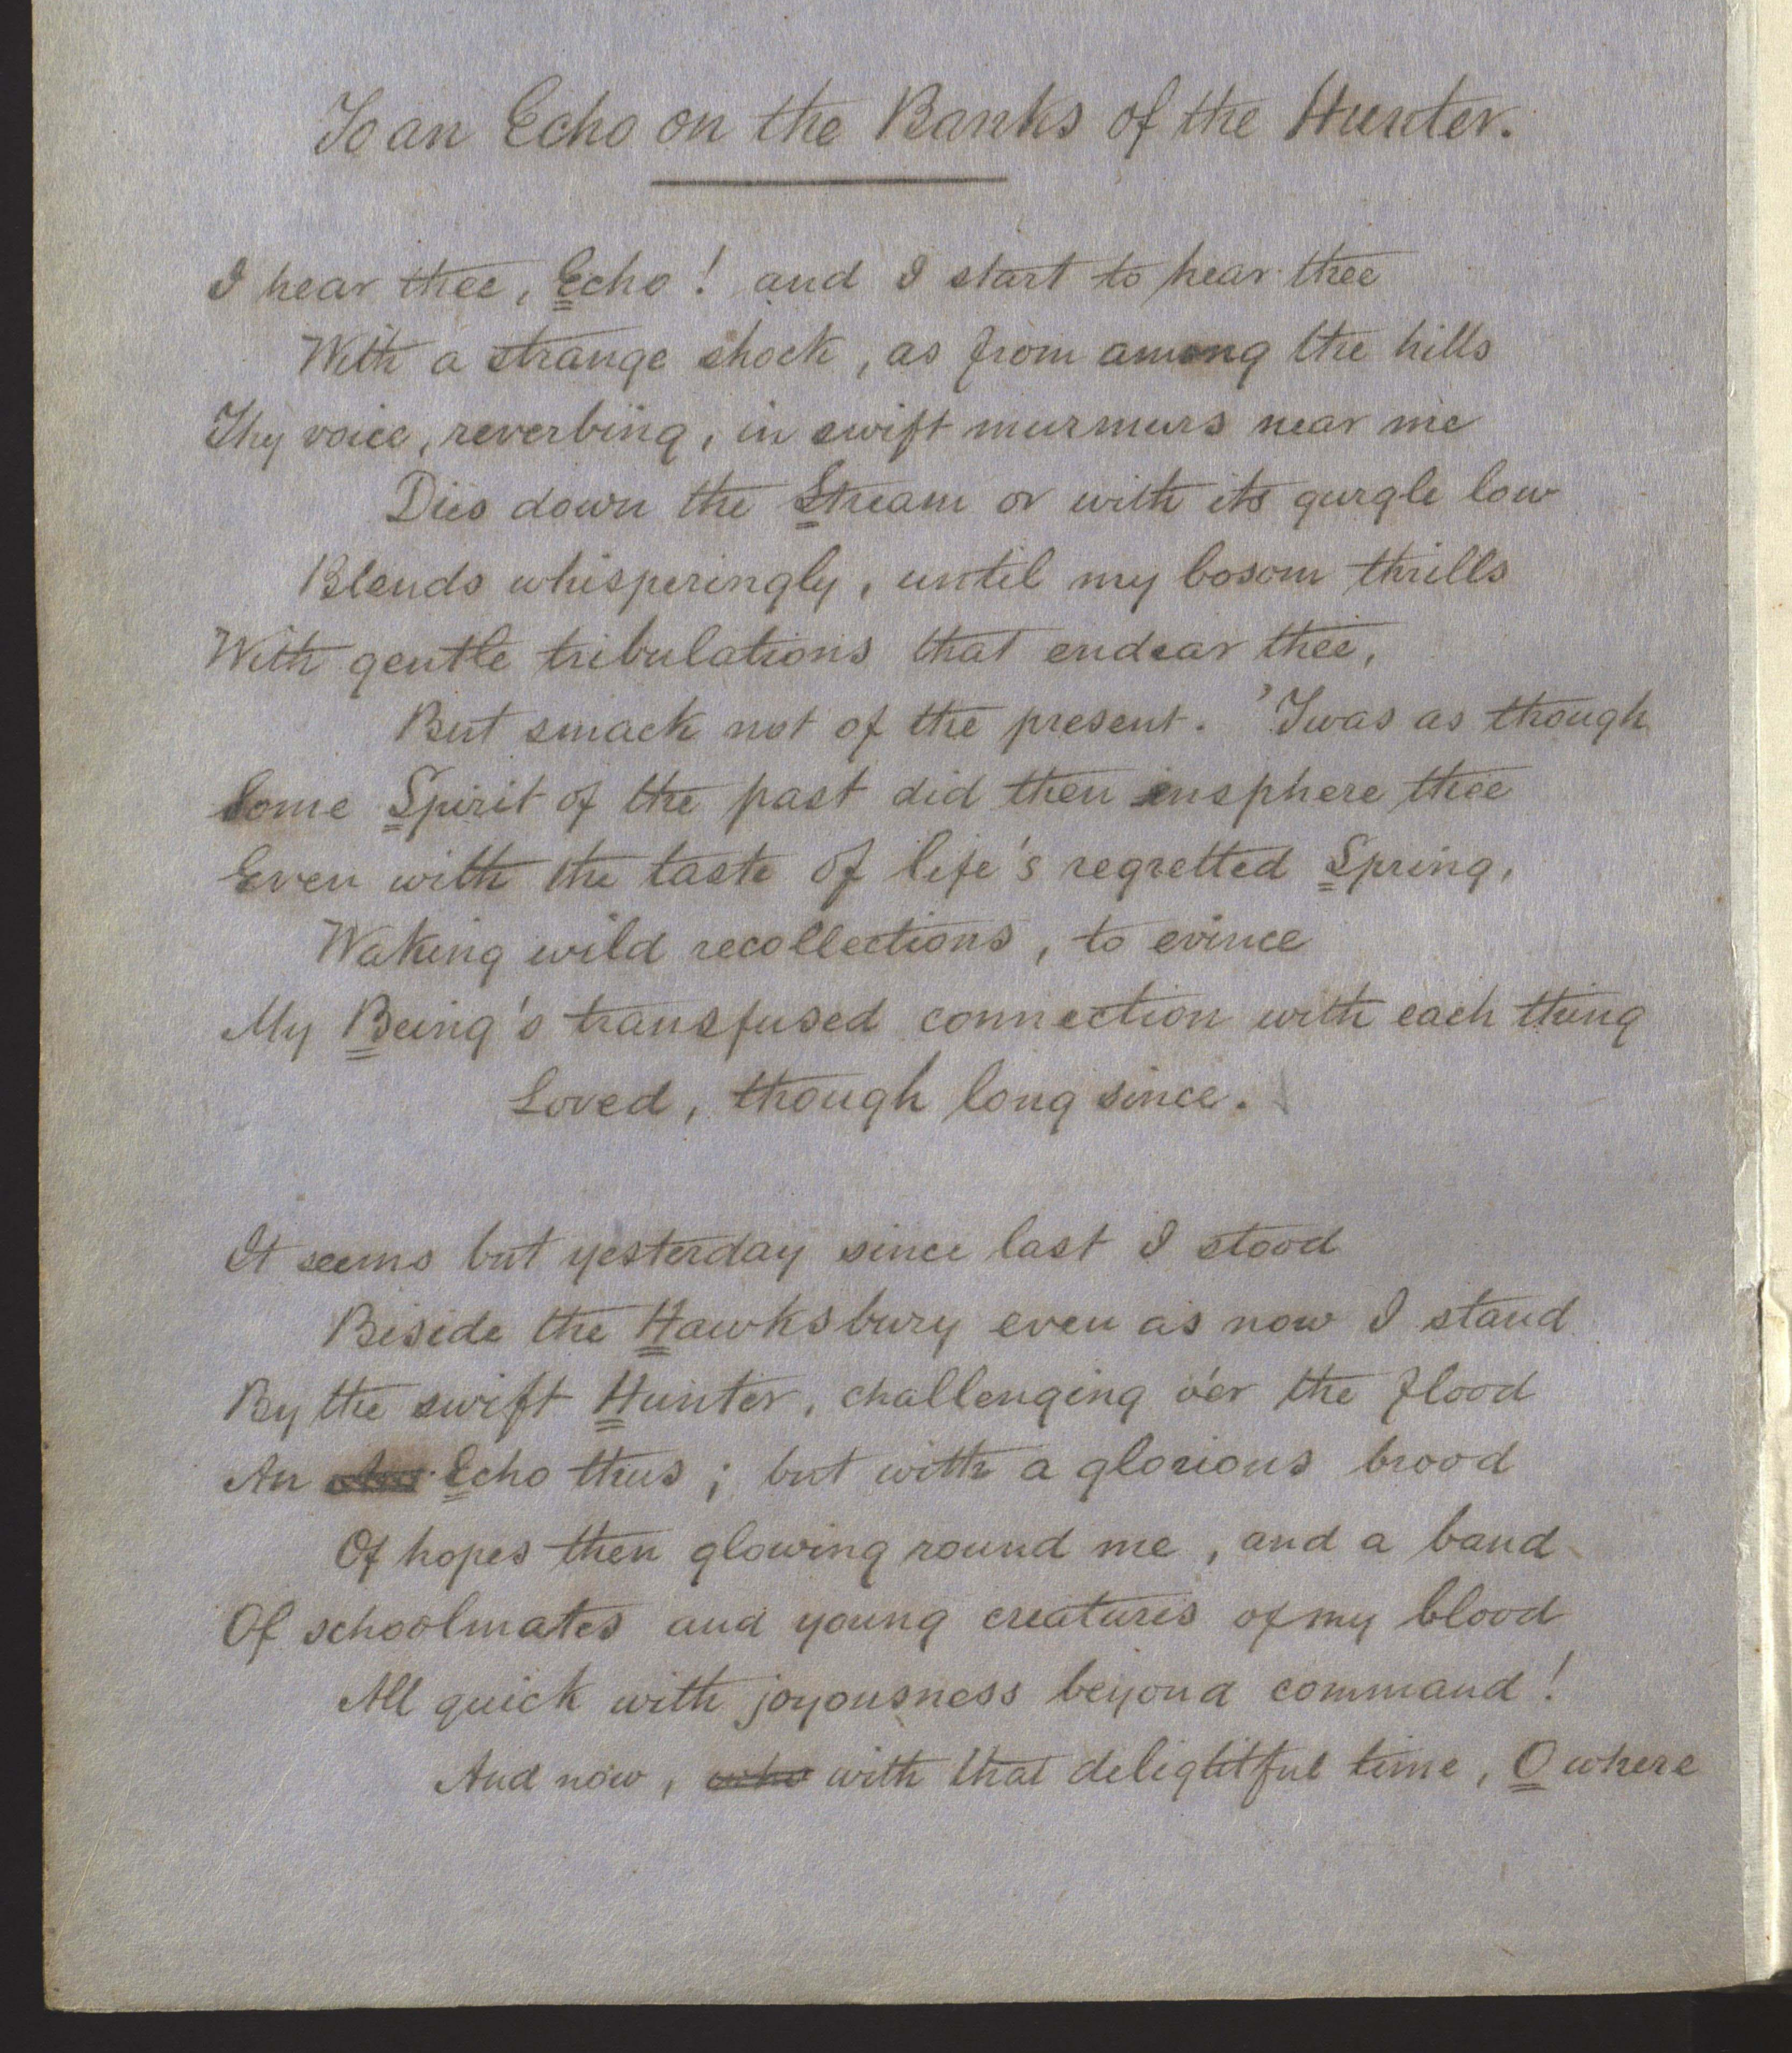 To an Echo on the Banks of the Hunter.
I hear thee, Echo! and I start to hear thee
With a strange shock, as from among the hills
Thy voice, reverbing, in swift murmurs near me
Dies down the Stream or with its gurgle low
Blends whisperingly, until my bosom thrills
With gentle tribulations that endear thee,
But smack not of the present. 'Twas as though
Some Spirit of the past did then insphere thee
Even with the taste of life's regretted Spring,
Waking wild recollections, to evince
My Being's transfused connection with each thing
Loved, though long since.
It seems but yesterday since last I stood
Beside the Hawksbury even as now I stand
By the swift Hunter, challenging o'er the flood
An Echo thus; but with a glorious brood
Of hopes then glowing round me, and a band
Of schoolmates and young creatures of my blood
All quick with joyousness beyond command!
And now, with that delightful time, O where